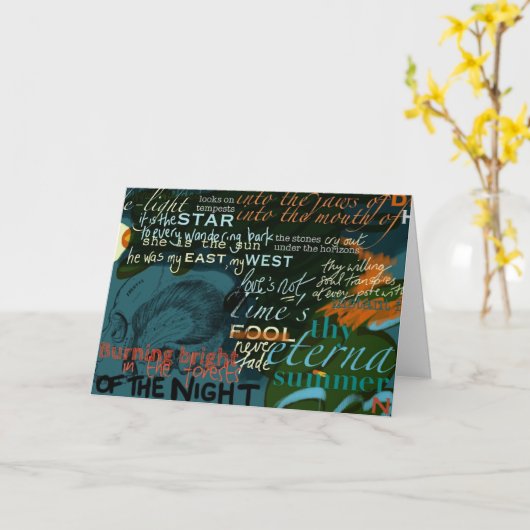 e-light
looks on
tempests
into the jaws of D
it is the STAR
into the mouth of H
to every wandering bark
she is the sun
the stones cry out
under the horizons
he was my EAST, my WEST
thy willing
soul transpires
at every pore with
love's not
Time's
FOOL
thy
never
fade
eterna
summer
Burning bright
in the forests
OF THE NIGHT
N